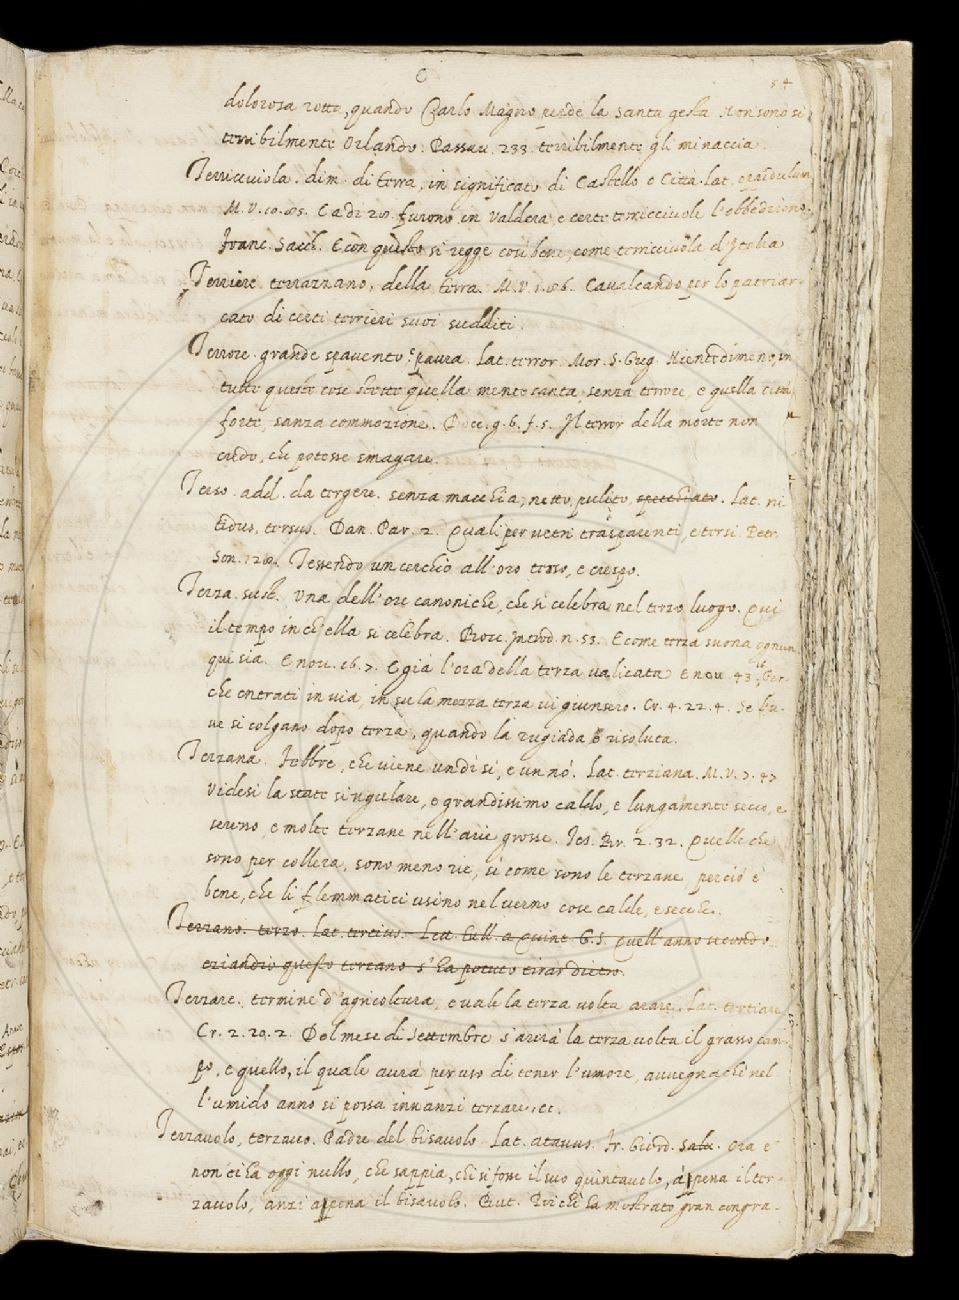 C 54
dolorosa rotta, quando Carlo Magno perdè la santa gesta Non sonò si
terribilmente Orlando. Passau. 233. terribilmente gli minaccia.
Terricciuola. dim. di terra, in significato di Castello o Città. Lat. oppidulum
M. V. 10. 85. E a dì 20. furono in Valdera e certe terricciuole l'obbedirono.
Franc. Sacch. E con questo si regge così bene, come terricciuola d'Italia
Terriere. terrazzano, della terra. M. V. 1. 86. Cavalcando per lo patriar-
cato di certi terrieri suoi sudditi.
Terrore. grande spavento e paura. Lat. terror. Mor. S. Greg. Nientedimeno, in
tutte queste cose stette quella mente santa, senza terrore, e quella città
forte, sanza commozione. Bocc. g. 6. f. 5. Il terror della morte non
credo, che potesse smagare.
Terso. add. da tergere. senza macchia, netto, pulito, specchiato. Lat. ni-
tidus, tersus. Dan. Par. 2. Quali per vetri trasparenti, e tersi. Petr.
Son. 128. Tessendo un cerchio all'oro terso, e crespo.
Terza. sust. Una dell'ore canoniche, che si celebra nel terzo luogo. Qui
il tempo in ch'ella si celebra. Bocc. Introd. n. 53. E come terza suona, ognun
qui sia. E nov. 16. 7. E già l'ora della terza valicata E nov. 43. 16. Per-
che entrati in via, in su la mezza terza vi giunsero. Cr. 4. 22. 4. Se l'u-
ve si colgano dopo terza, quando la rugiada è risoluta.
Terzana. Febbre, che viene un dì sì, e un nò. Lat. terziana. M. V. 7. 47
Videsi la state singulare, e grandissimo caldo, e lungamente secco, e
sereno, e molte terzane nell'arie grosse. Tes. Br. 2. 32. Quelle che
sono per collera, sono meno rie, sì come sono le terzane perciò è
bene, che li flemmatici usino nel verno cose calde, e secche.
Terzano. terzo. Lat. tertius. Lett. quell'anno secondo
eziandio questo terzano s'ha potuto tirar dietro.
Terzare. termine d'agricoltura, e vale la terza volta arare. Lat. tertiare
Cr. 2. 20. 2. Del mese di Settembre s'arerà la terza volta il grasso cam-
po, e quello, il quale avrà per uso di tener l'umore, avvegnachè nel
l'umido anno si possa innanzi terzare, ec.
Terzavolo, terzavo. Padre del bisavolo. Lat. atavus. Fr. Giord. Salv. Ora e'
non ci ha oggi nullo, che sappia, chi si fosse il suo quintavolo, appena il ter-
zavolo, anzi appena il bisavolo. But. Poichè ha mostrato gran congra-